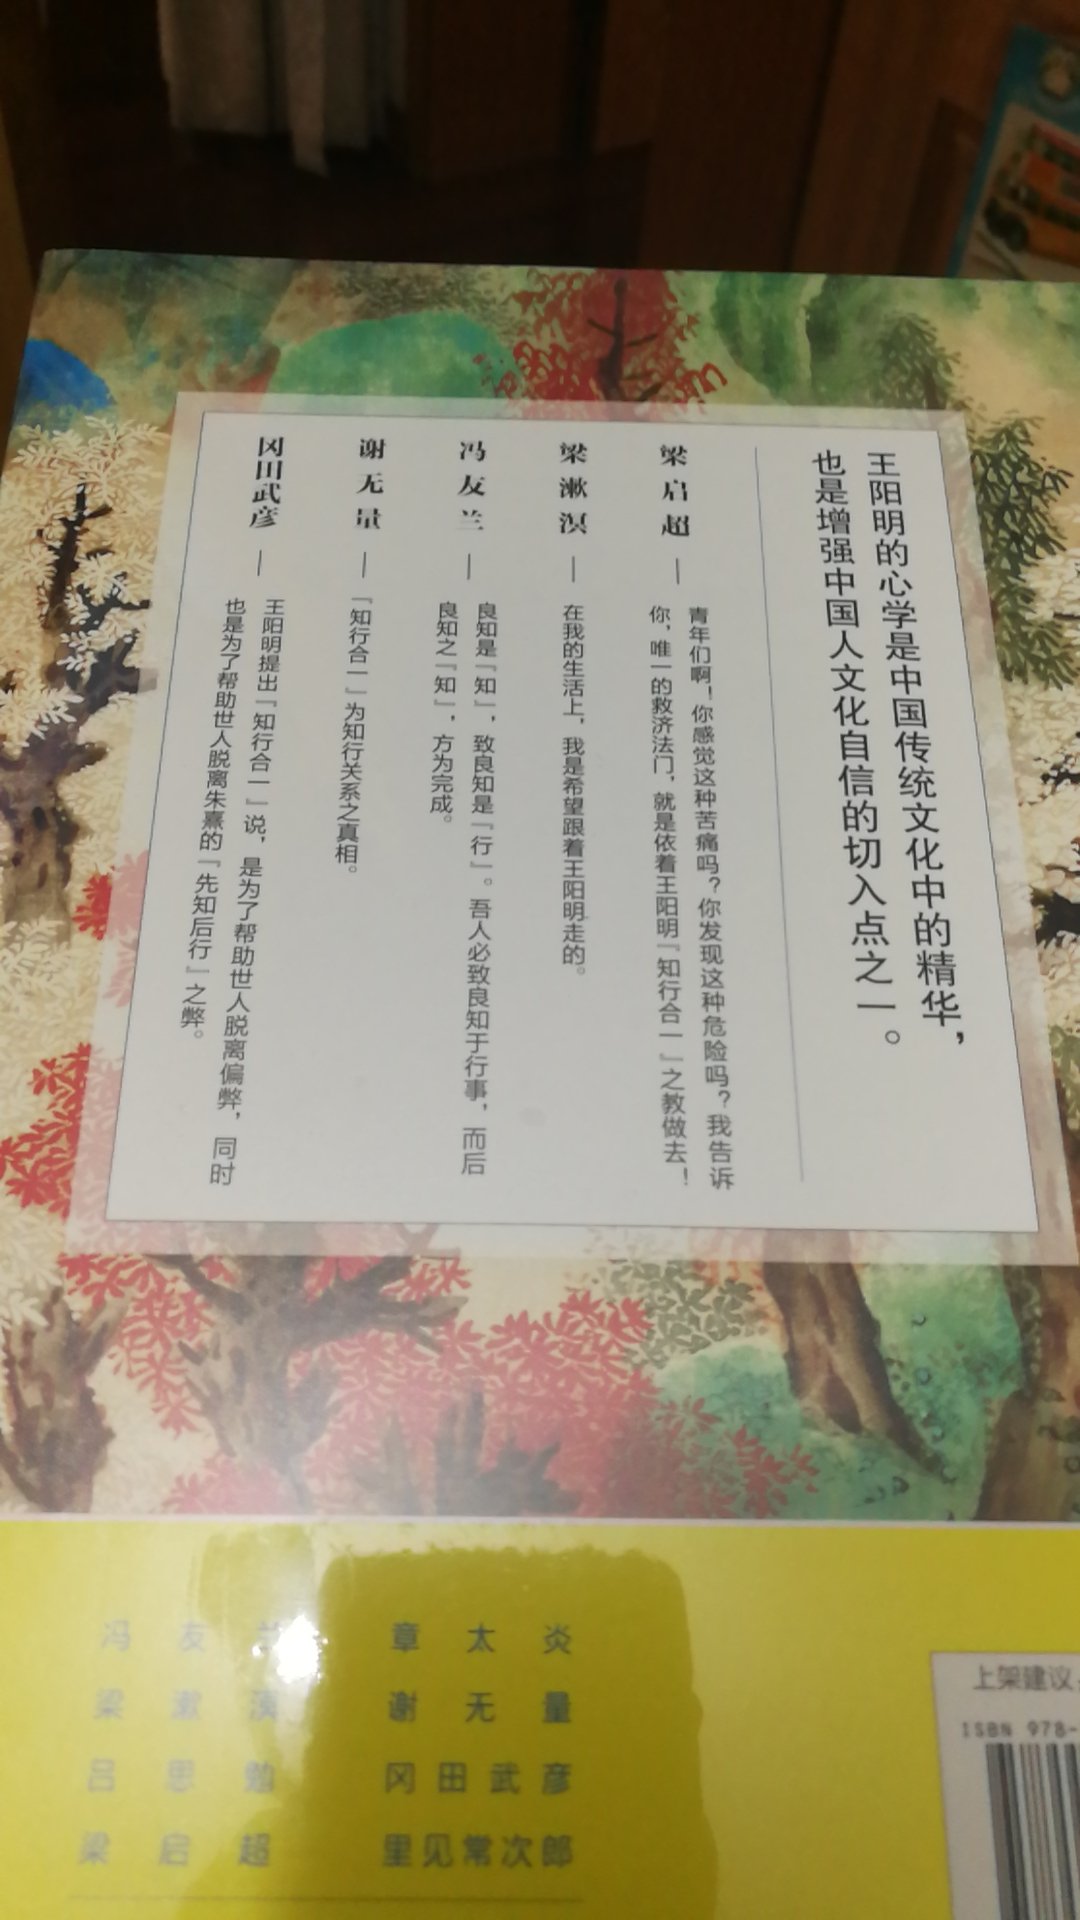 王阳明的心学是中国传统文化中的精华，
也是增强中国人文化自信的切入点之一。
梁启超—
青年们啊！你感觉这种苦痛吗？你发现这种危险吗？我告诉
你，唯一的救济法门，就是依着王阳明『知行合一』之教做去！
梁漱溟—
在我的生活上，我是希望跟着王阳明走的。
冯友兰—
良知是『知』，致良知是『行』。吾人必致良知于行事，而后
良知之『知』，方为完成。
谢无量—
『知行合一』为知行关系之真相。
冈田武彦—
王阳明提出『知行合一』说，是为了帮助世人脱离偏弊，同时
也是为了帮助世人脱离朱熹的『先知后行』之弊。
冯友兰 章太炎
梁漱溟 谢无量
吕思勉 冈田武彦
梁启超 里见常次郎
上架建议
ISBN 978-